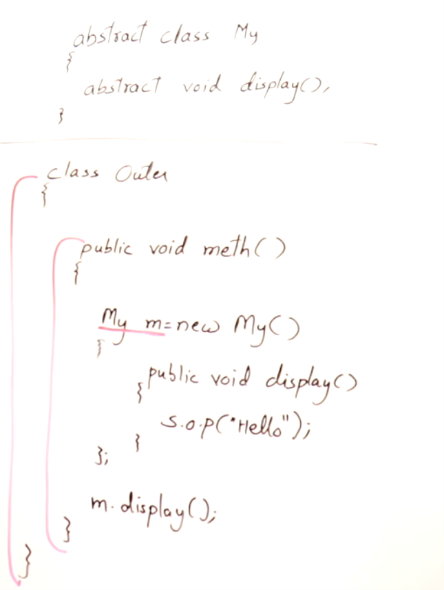 abstract class My
{
abstract void display();
}
class Outer
{
public void meth()
{
My m=new My()
{
public void display()
{
S.o.p("Hello");
}
};
m.display();
}
}